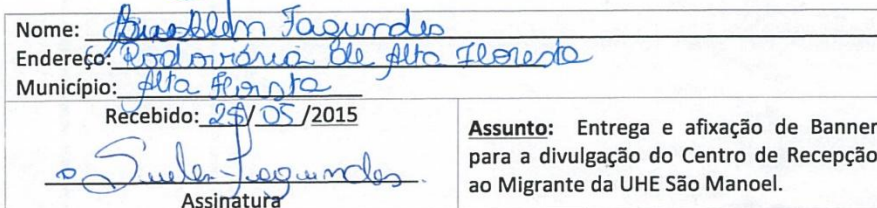 Nome: Fagundes
Endereço: Rodoviária de Alta Floresta
Município: Alta Floresta
Recebido: /05/2015
Assinatura
Assunto: Entrega e afixação de Banner
para a divulgação do Centro de Recepção
ao Migrante da UHE São Manoel.